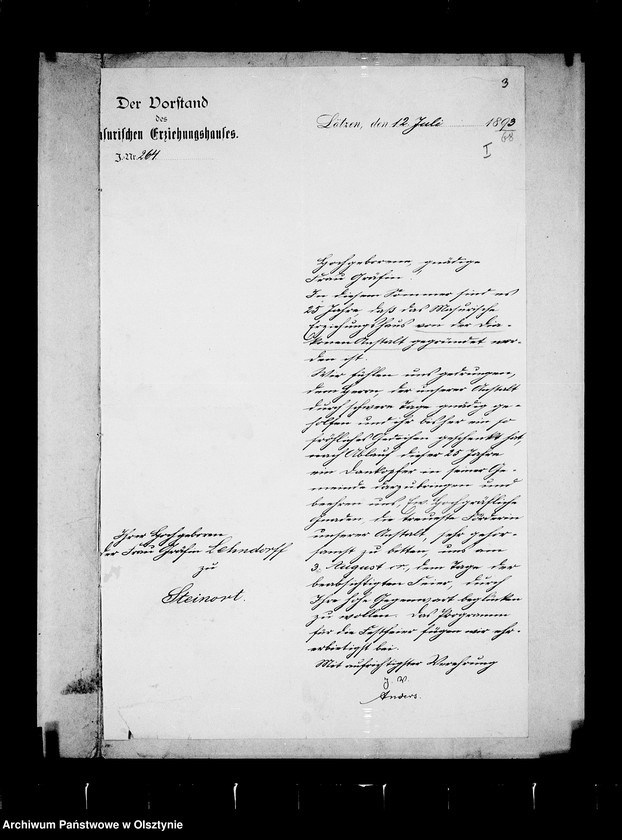 3
Der Vorstand
des
asurischen Erziehungshauses.
J.-Nr. 264
Lötzen, den 12. Juli 1893
68
I
Hochgeborene, gnädige
Frau Gräfin.
In diesem Sommer sind es
25 Jahre, daß das Masurische
Erziehungshaus von der Dia-
konen Anstalt gegründet wor-
den ist.
Wir fühlen uns gedrungen,
dem Herrn, der unserer Anstalt
durch schwere Tage gnädig ge-
holfen und ihr bisher ein so
fröhliches Gedeihen geschenkt hat,
nach Ablauf dieser 25 Jahre
ein Dankopfer in seiner Ge-
meinde darzubringen und
beehren uns Ew Hochgräfliche
Gnaden, die treueste Förderin
unserer Anstalt, sehr gehor-
samst zu bitten, uns am
3. August cr., dem Tage der
beabsichtigten Feier, durch
Ihre hohe Gegenwart beglücken
zu wollen. Das Programm
für die Festfeier fügen wir ehr-
erbietigst bei.
Mit aufrichtigster Verehrung
J. V.
Anders.
Ihrer Hochgeboren
der Frau Gräfin Lehndorff
zu
Steinort.
Archiwum Państwowe w Olsztynie